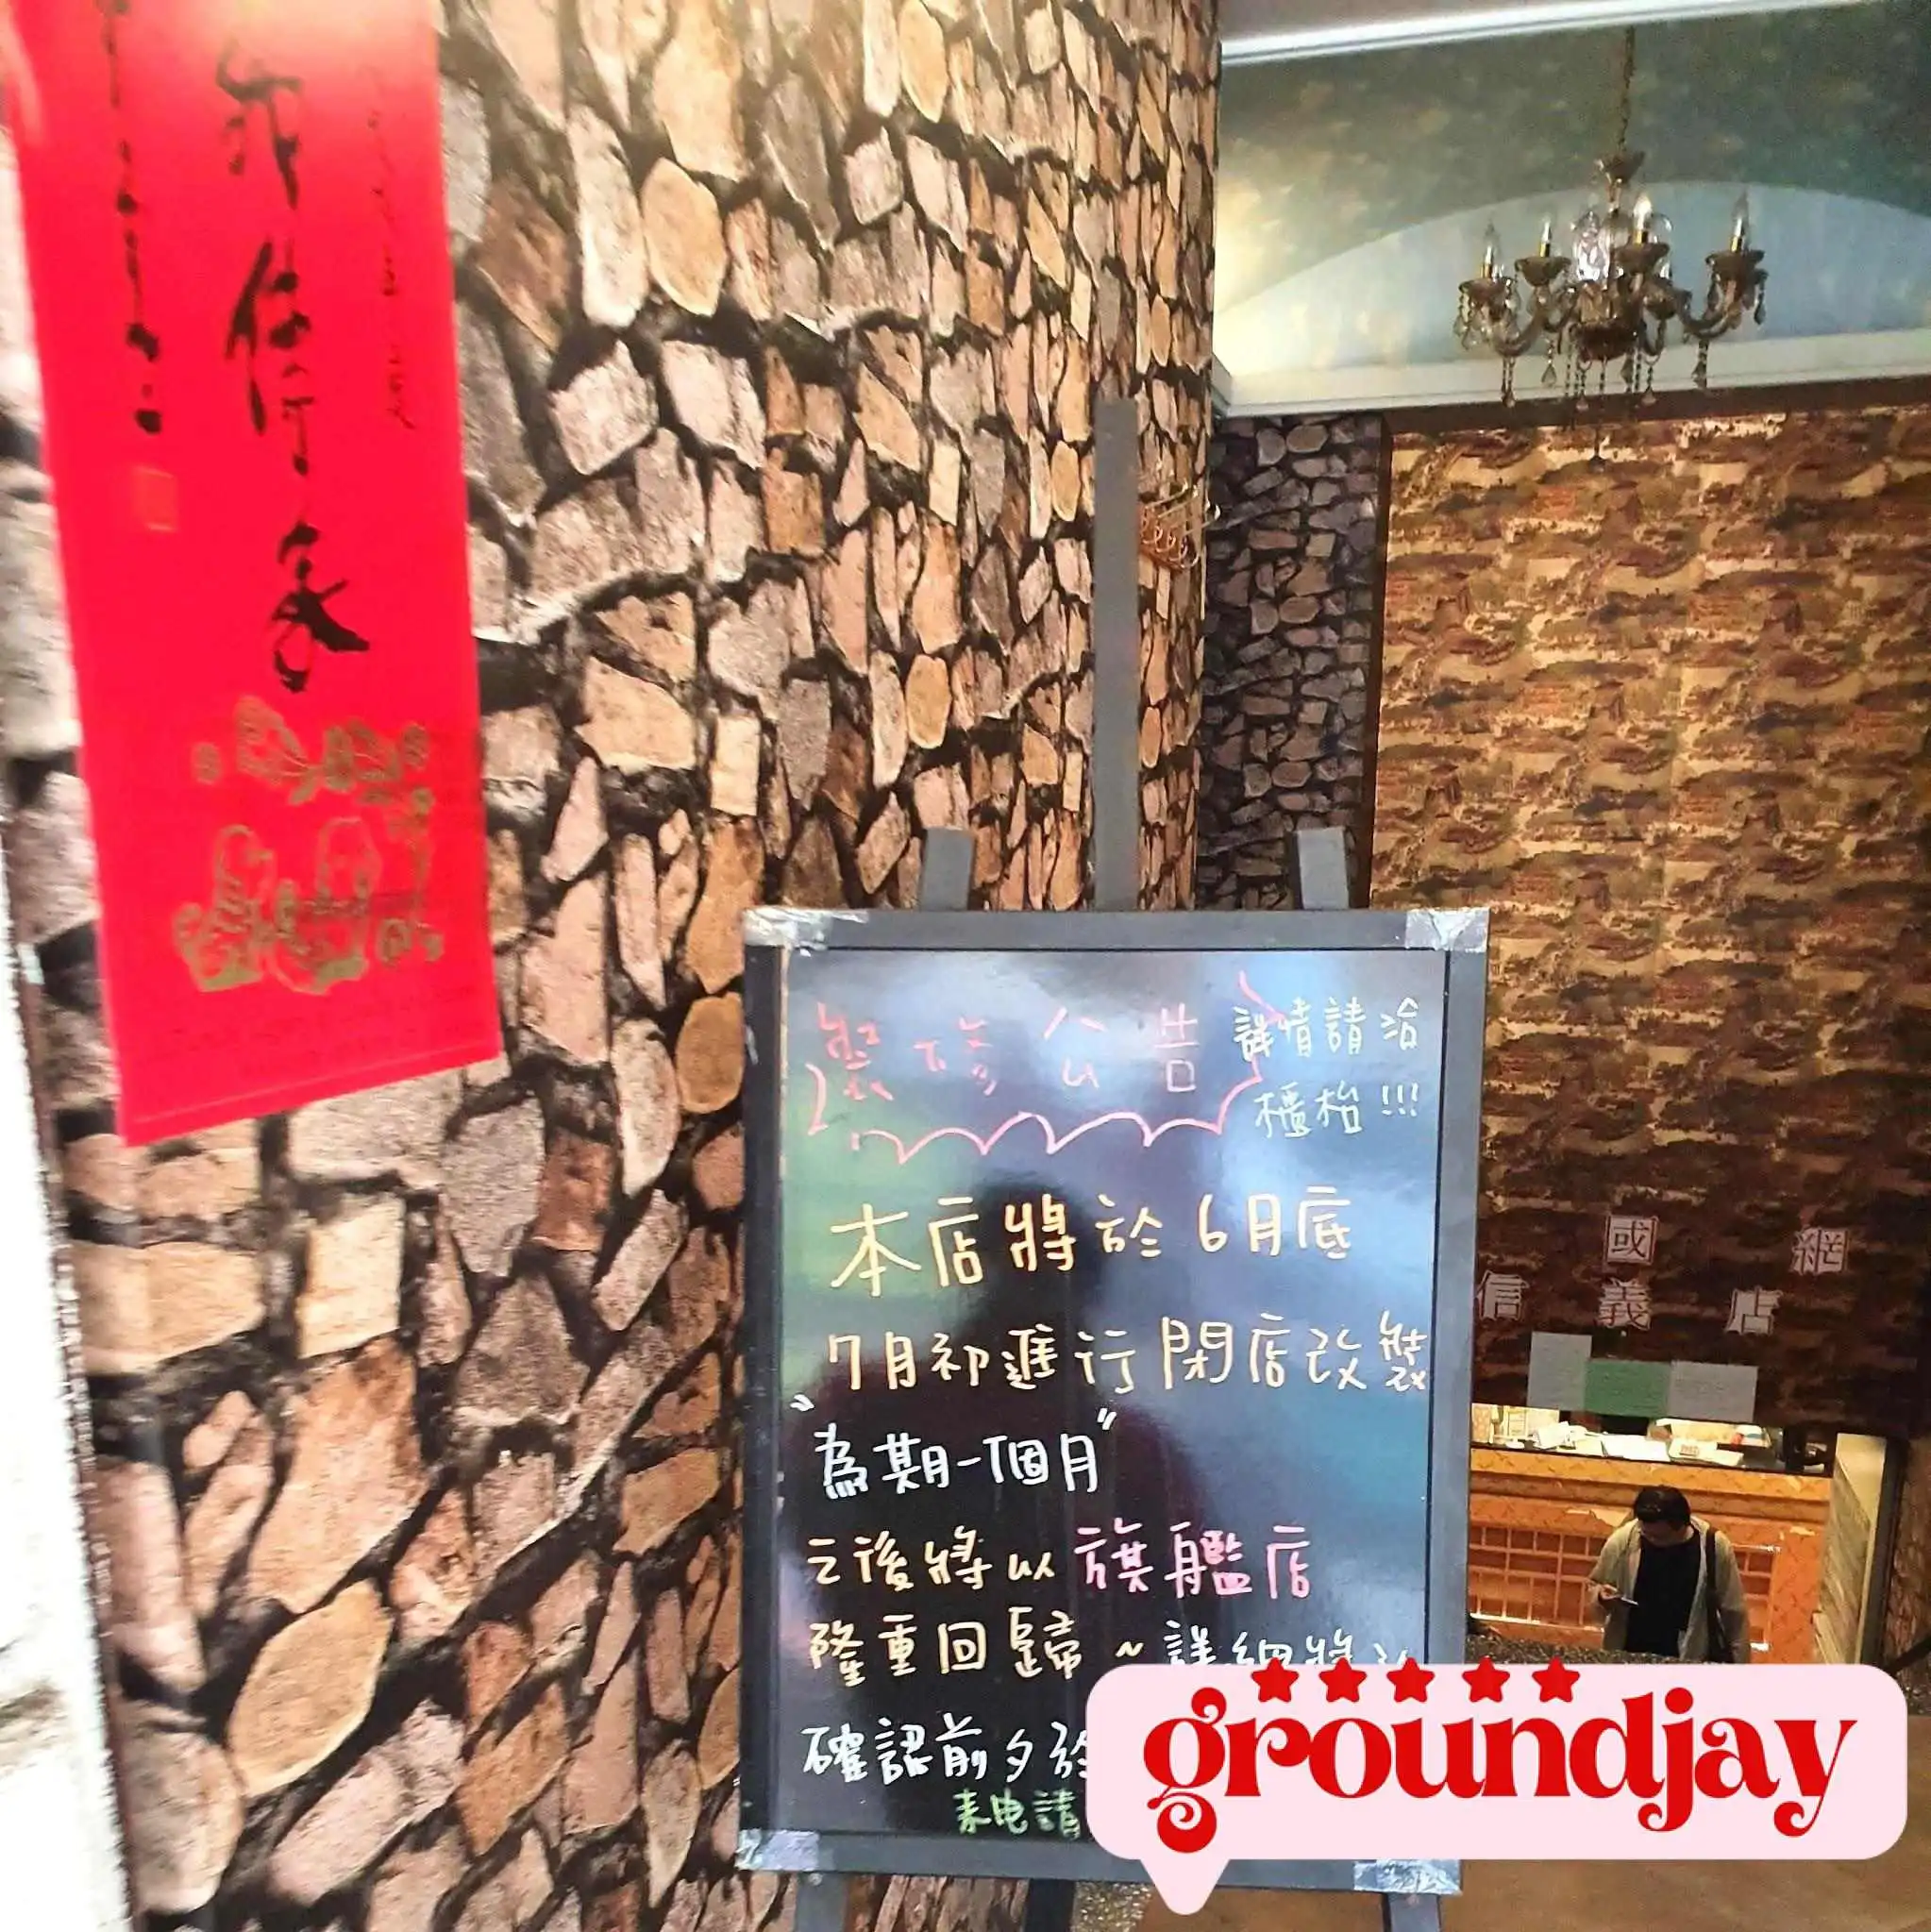 裝修公告
詳情請洽
櫃枱!!!
本店將於6月底
7月初進行閉店改裝
"為期一個月"
之後將以旗艦店
隆重回歸~詳細將
確認前夕於
來电請
國 網
信 義 店
groundjay